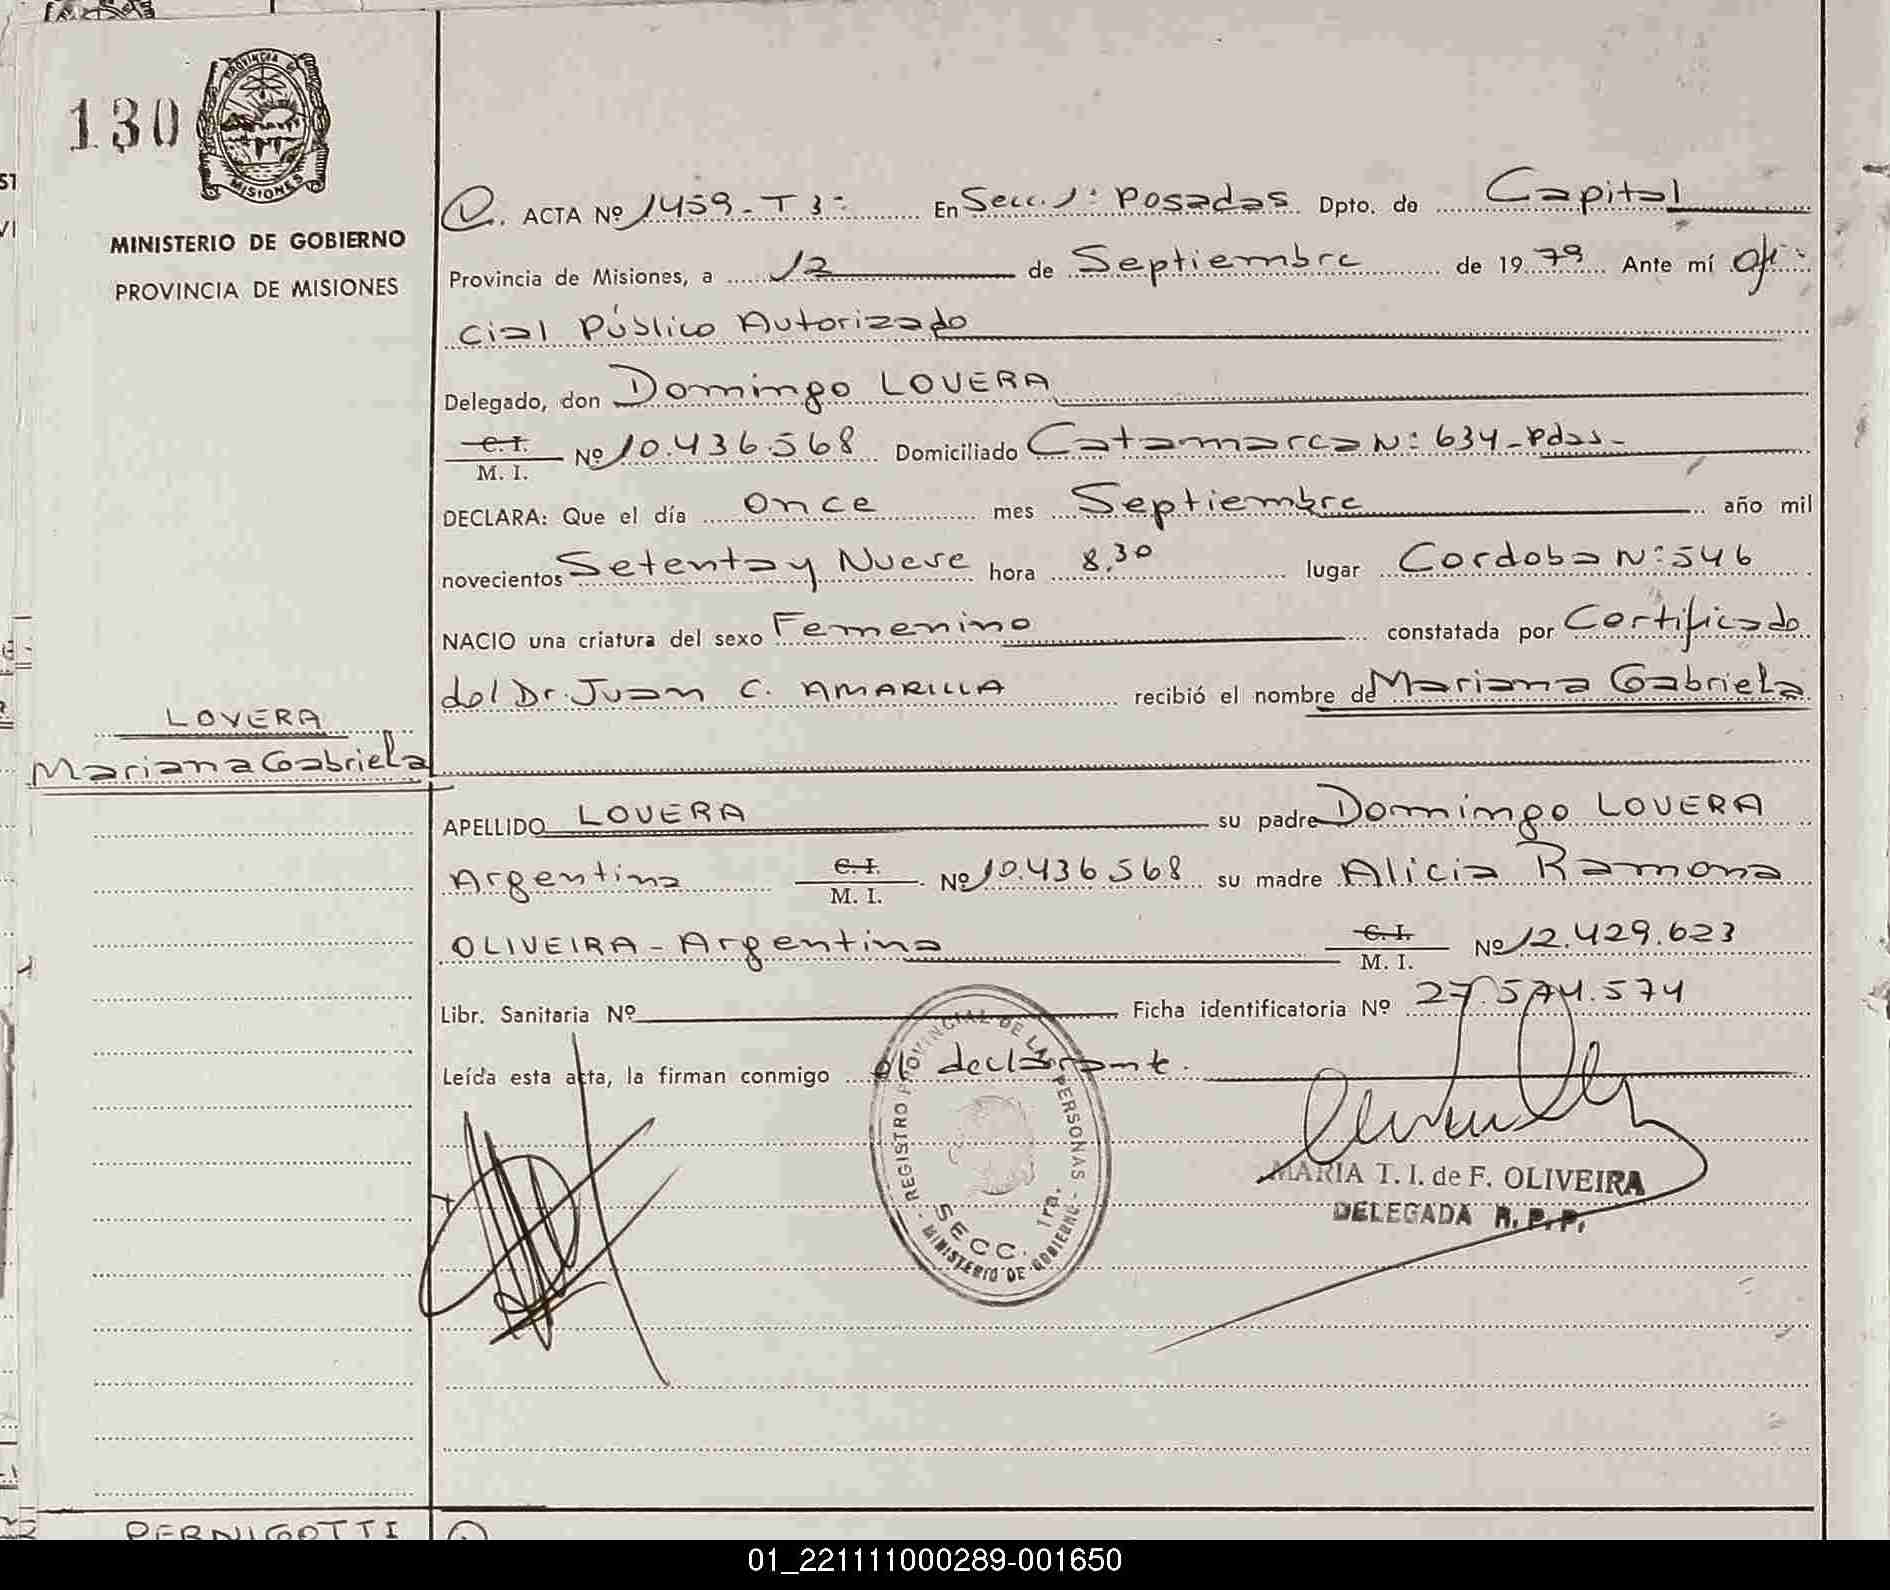 130
PROVINCIA DE
MISIONES
MINISTERIO DE GOBIERNO
PROVINCIA DE MISIONES
LOVERA
Mariana Gabriela
ACTA Nº 1459-T3- En Secc. 1: Posadas Dpto. de Capital
Provincia de Misiones, a 12 de Septiembre de 1979 Ante mí Ofi-
cial Público Autorizado
Delegado, don Domingo LOVERA
C. I.
M. I. Nº 10.436.568 Domiciliado Catamarca N: 634-Pdas-
DECLARA: Que el día once mes Septiembre año mil
novecientos Setenta y Nueve hora 8,30 lugar Cordoba N: 546
NACIO una criatura del sexo Femenino constatada por Certificado
del Dr. Juan C. AMARILLA recibió el nombre de Mariana Gabriela
APELLIDO LOVERA su padre Domingo LOVERA
Argentina C. I.
M. I. Nº 10.436.568 su madre Alicia Ramona
OLIVEIRA - Argentina C. I.
M. I. Nº 12.429.623
Libr. Sanitaria Nº Ficha identificatoria Nº 27.574.574
Leída esta acta, la firman conmigo el declarante.
REGISTRO PROVINCIAL DE LAS PERSONAS
SECC. 1ra.
- MINISTERIO DE GOBIERNO -
MARIA T. I. de F. OLIVEIRA
DELEGADA R. P. P.
PERNIGOTTI
01_221111000289-001650